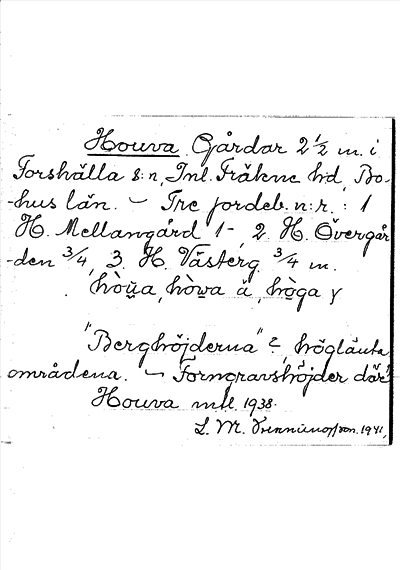 Houva. Gårdar 2½ m. i
Forshälla s:n, Inl. Fräkne hd, Bo-
-hus län. – Tre jordeb. n:r. : 1
H. Mellangård 1-, 2 H. Övergår
-den 3/4, 3. H. Västerg. 3/4 m.
hòu̯a, hòwa ä, hòga y
"Berghöjderna" ?, högläuta
områdena. – Forngravshöjder där
Houva mtl 1938.
L. M. 1941.